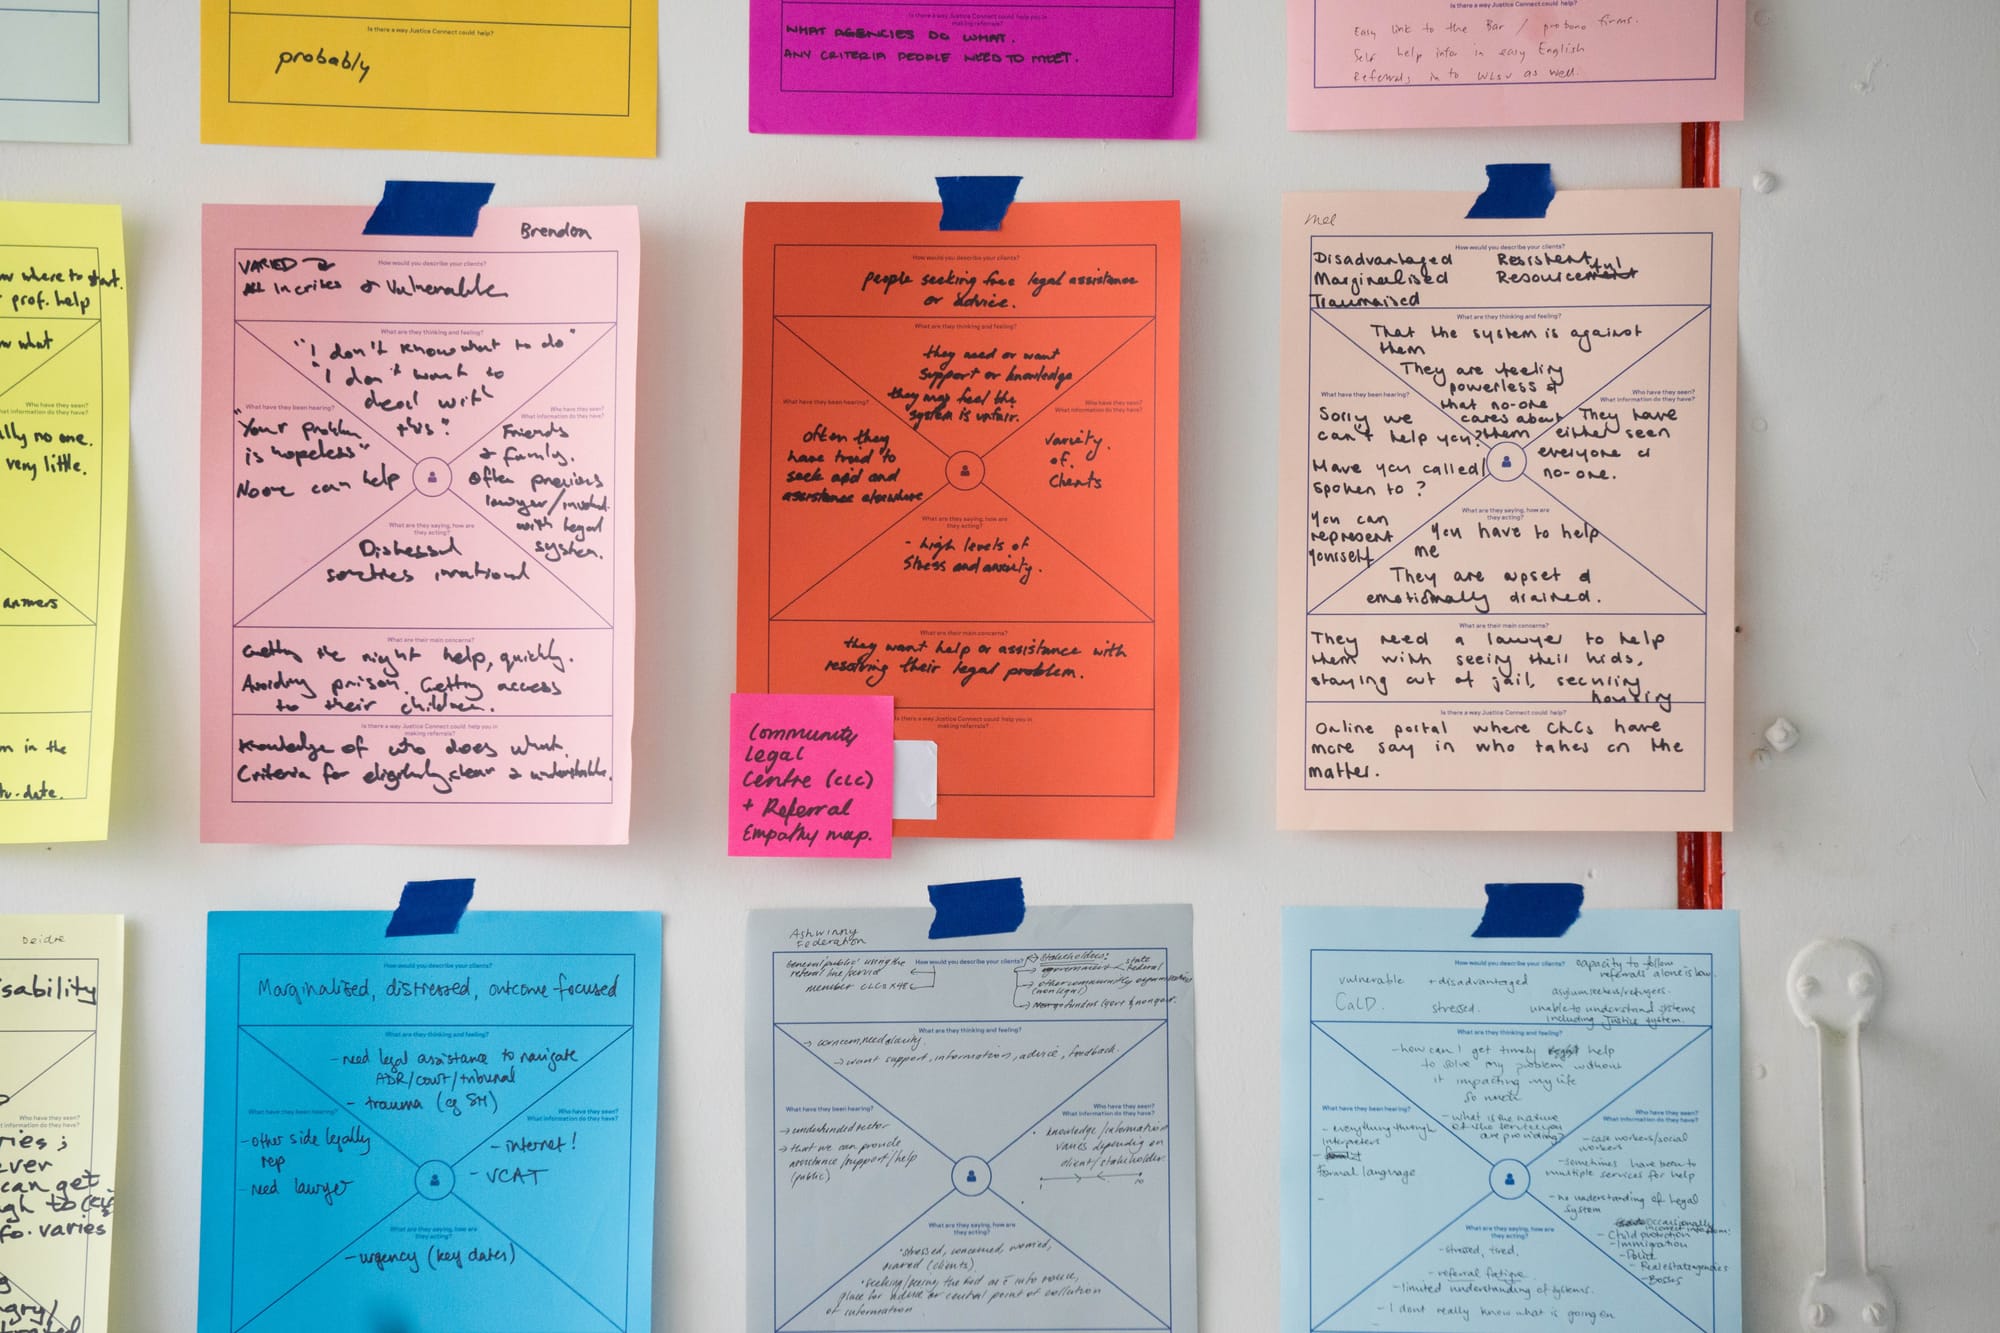 Is there a way Justice Connect could help?
probably
Is there a way Justice Connect could help you in
making referrals?
WHAT AGENCIES DO WHAT.
ANY CRITERIA PEOPLE NEED TO MEET.
Is there a way Justice Connect could help?
Easy link to the Bar / probono firms.
Self help info in easy English
Referrals in to WLSV as well.
where to start.
prof. help
what
Who have they seen?
What information do they have?
no one.
very little.
answers
in the
date.
Brendon
How would you describe your clients?
VARIED
All In crises & Vulnerable
What are they thinking and feeling?
"I don't know what to do"
"I don't want to
deal with
this"
What have they been hearing?
"Your problem
is hopeless"
No one can help
Who have they seen?
What information do they have?
Friends
& family.
Often previous
lawyer/involved
with legal
system.
What are they saying, how are
they acting?
Distressed
sometimes irrational
What are their main concerns?
Getting the right help, quickly.
Avoiding prison. Getting access
to their children.
Is there a way Justice Connect could help you in
making referrals?
Knowledge of who does what.
Criteria for eligibility clear & understandable.
How would you describe your clients?
people seeking free legal assistance
or advice.
What are they thinking and feeling?
they need or want
support or knowledge
they may feel the
system is unfair.
What have they been hearing?
often they
have tried to
seek aid and
assistance elsewhere
Who have they seen?
What information do they have?
Variety
of
Clients
What are they saying, how are
they acting?
- high levels of
stress and anxiety.
What are their main concerns?
they want help or assistance with
resolving their legal problem.
Is there a way Justice Connect could help you in
making referrals?
Community
Legal
Centre (CLC)
+ Referral
Empathy map.
Mel
How would you describe your clients?
Disadvantaged Resistent
Marginalised Resourceful
Traumatised
What are they thinking and feeling?
That the system is against
them
They are feeling
powerless &
that no-one
cares about
them
What have they been hearing?
Sorry we
can't help you?
Have you called/
spoken to?
You can
represent
yourself
Who have they seen?
What information do they have?
They have
either seen
everyone or
no-one.
What are they saying, how are
they acting?
You have to help
me
They are upset &
emotionally drained.
What are their main concerns?
They need a lawyer to help
them with seeing their kids,
staying out of jail, securing
housing
Is there a way Justice Connect could help you in
making referrals?
Online portal where CLCs have
more say in who takes on the
matter.
Deidre
Who have they seen?
What information do they have?
can get
varies
How would you describe your clients?
Marginalised, distressed, outcome focused
What are they thinking and feeling?
- need legal assistance to navigate
ADR/court/tribunal
- trauma (eg SH)
What have they been hearing?
- other side legally
rep
- need lawyer
Who have they seen?
What information do they have?
- internet!
- VCAT
What are they saying, how are
they acting?
- urgency (key dates)
Ashwinny
Federation
How would you describe your clients?
General public using the
referral line/service
member CLCs x 48
Stakeholders:
government
state
federal
other community organisations
(non legal)
funders (gov & nongov.
What are they thinking and feeling?
→ concern, need clarity
→ want support, information, advice, feedback.
What have they been hearing?
→ underfunded sector
→ that we can provide
assistance/support/help
(public)
Who have they seen?
What information do they have?
knowledge/information
varies depending on
client/stakeholder.
1 10
What are they saying, how are
they acting?
• stressed, concerned, worried,
(clients)
• seeking/seeing the Fed as
place for advice or central point of collation
of information
How would you describe your clients?
vulnerable + disadvantaged
CaLD. stressed.
capacity to follow
referrals alone is low.
asylum seekers/refugees.
unable to understand systems
including Justice system.
What are they thinking and feeling?
- how can I get timely help
to solve my problem without
it impacting my life
so much
- what is the nature
of the service you
are providing?
What have they been hearing?
- everything through
interpreters
Formal language
Who have they seen?
What information do they have?
- case workers/social
workers
- sometimes have been to
multiple services for help
- no understanding of legal
system
occasionally
- Child protection
- Immigration
- Police
- Real estate agencies
- Bosses
What are they saying, how are
they acting?
- stressed, tired,
- referral fatigue
- limited understanding of systems.
- I dont really know what is going on